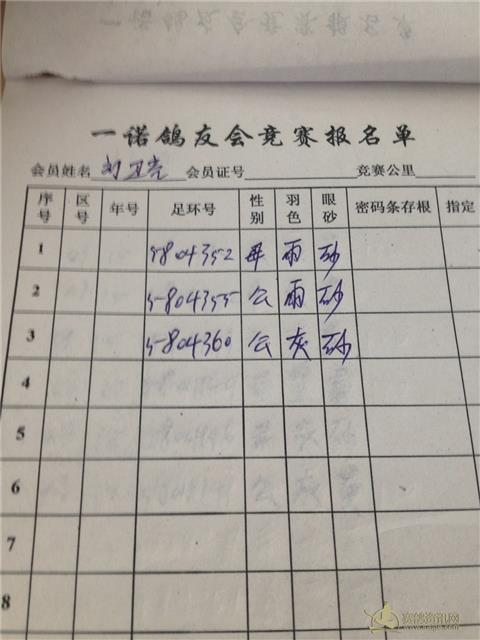 一诺鸽友会竞赛报名单
会员姓名 刘卫党 会员证号 竞赛公里
序号 区号 年号 足环号 性别 羽色 眼砂 密码条存根 指定
1 5804352 母 雨 砂
2 5804355 公 雨 砂
3 5804360 公 灰 砂
4
5
6
7
8
赛鸽资讯网